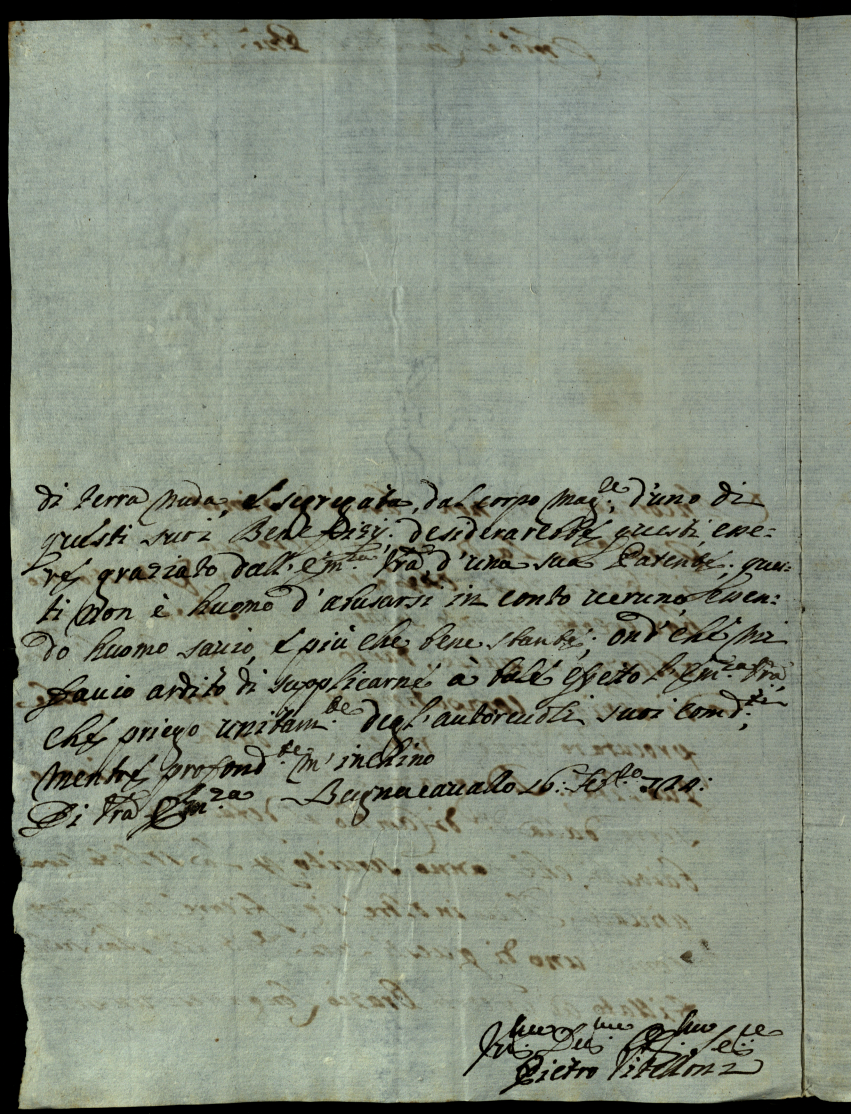 di terra nuda, e segregata, dal corpo mag.le d'uno di
questi suoi Benefizij: desiderarebbe questi, esse-
re graziato dall'Em.za V'ra d'una sua Patente; ques-
ti non è huomo d'abusarsi in conto veruno, essen-
do huomo savio, e più che bene stante; ond'è che mi
favio ardito di supplicarne à tale effetto l'Em.za V'ra
che priego unitam.te degl'autorevoli suoi com.di,
mentre profond.te m'inchino
Di V'ra Em.za Bagnacavallo 16:
Pietro Vitelloni